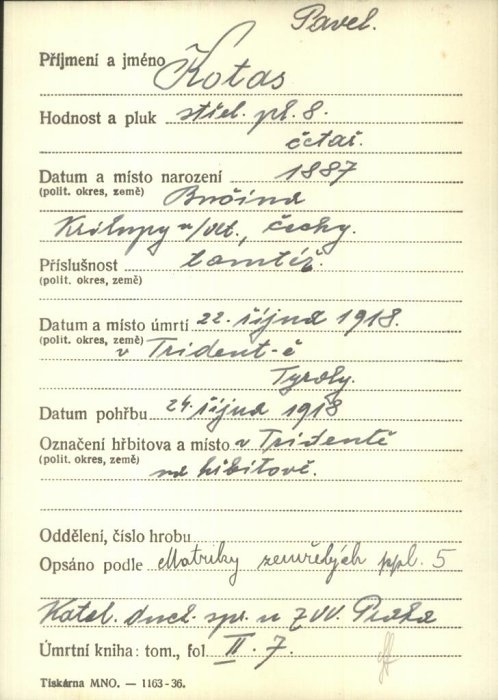 Pavel.
Příjmení a jméno Kotas
Hodnost a pluk střel. pl. 8.
četař.
Datum a místo narození 1887
(polit. okres, země) Bučina
Kralupy n/Vlt., Čechy.
Příslušnost tamtéž.
(polit. okres, země)
Datum a místo úmrtí 22. října 1918.
(polit. okres, země) v Trident-ě
Tyroly.
Datum pohřbu 24. října 1918
Označení hřbitova a místo v Tridentě
(polit. okres, země) na hřbitově.
Oddělení, číslo hrobu
Opsáno podle Matriky zemřelých ppl. 5
Katol. duch. spr. u ZVV. Praha
Úmrtní kniha: tom., fol II. 7.
Tiskárna MNO. — 1163-36.